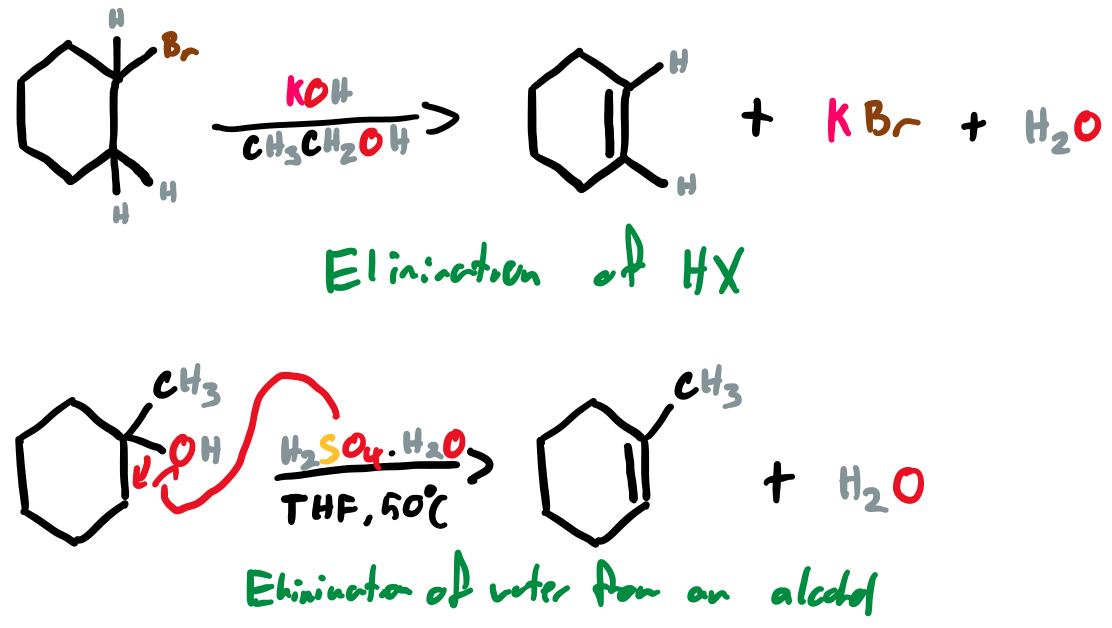 H
Br
KOH
CH₃CH₂OH
H
H
H
H
+ KBr + H₂O
Elimination of HX
CH₃
OH
H₂SO₄.H₂O
THF, 50°C
CH₃
+ H₂O
Elimination of water from an alcohol